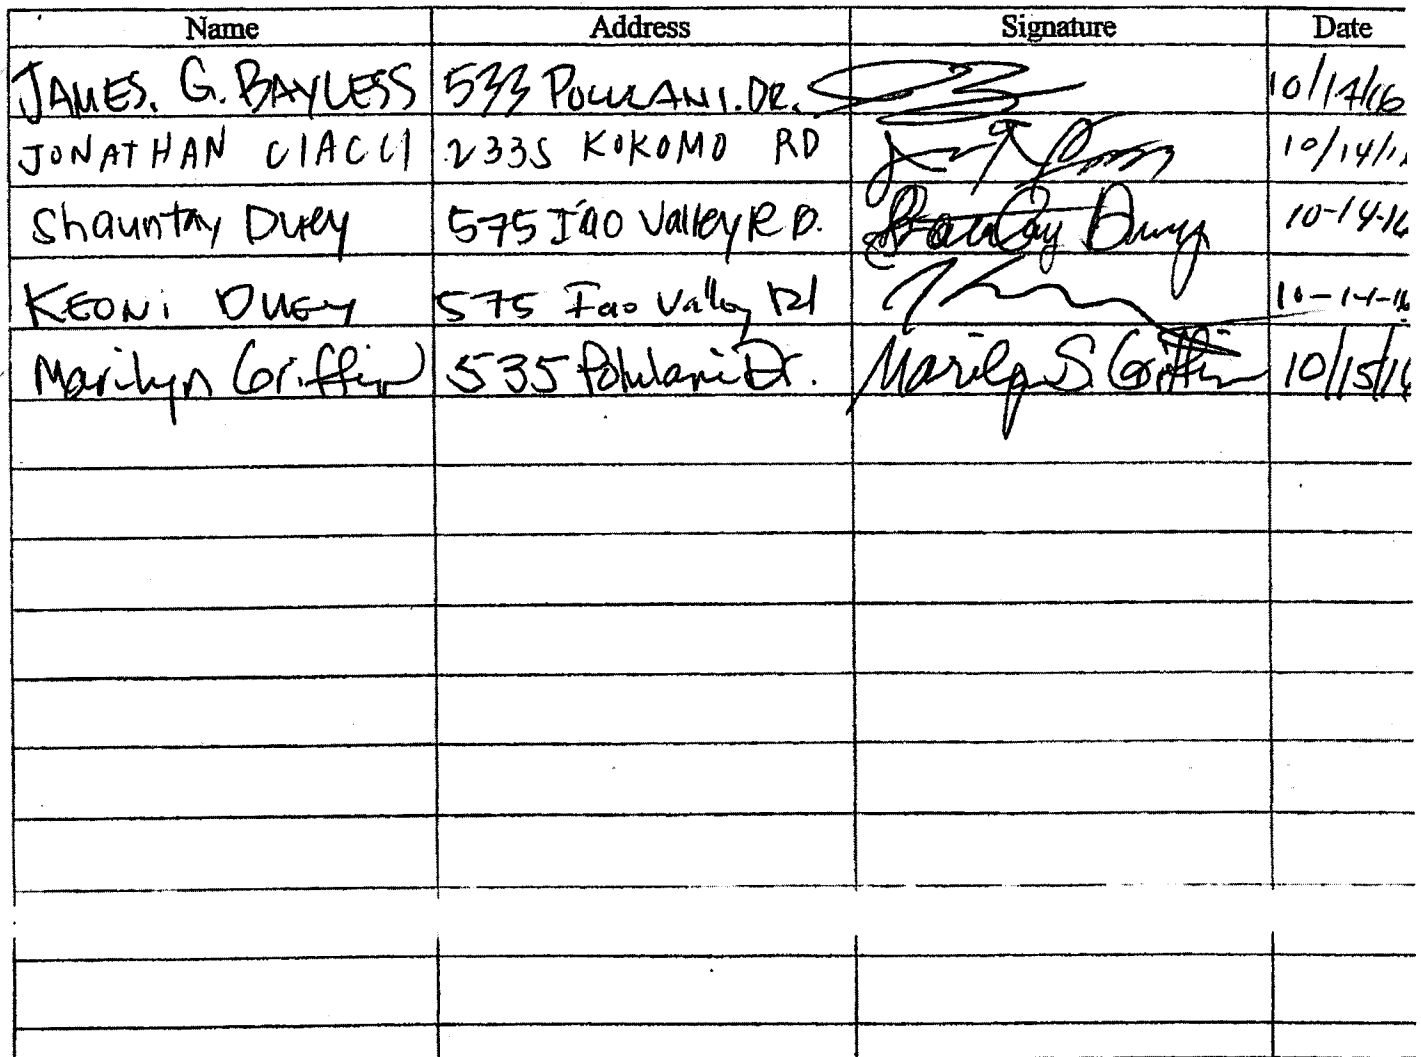 Name Address Signature Date
JAMES. G. BAYLESS 533 POLULANI. DR. 10/14/16
JONATHAN CIACCI 2335 KOKOMO RD 10/14/1
Shauntay Duey 575 Iao Valley RD. Shauntay Duey 10-14-16
KEONI DUEY 575 Iao Valley Rd 10-14-16
Marilyn Griffin 535 Polulani Dr. Marilyn S. Griffin 10/15/16